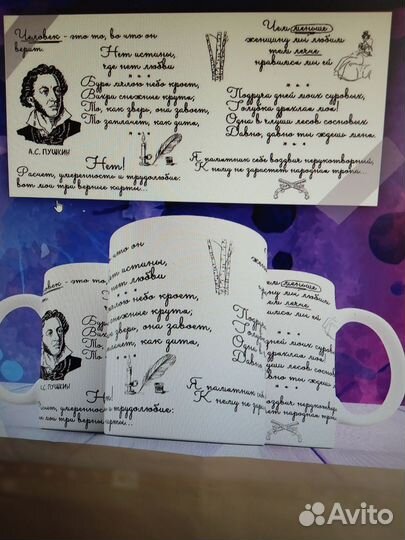 Человек - это то, во что он
верит.
Нет истины,
где нет любви
* * *
Буря мглою небо кроет,
Вихри снежные крутя;
То, как зверь, она завоет,
То заплачет, как дитя,
А.С. ПУШКИН
Нет!
Расчет, умеренность и трудолюбие:
вот мои три верные карты...
Чем меньше
женщину мы любим
тем легче
нравимся мы ей
* * *
Подруга дней моих суровых,
Голубка дряхлая моя!
Одна в глуши лесов сосновых
Давно, давно ты ждешь меня.
Я памятник себе воздвиг нерукотворный,
К нему не зарастет народная тропа...
овек - это то,
рит.
Бур
Вих
То,
То
.С. ПУШКИН
ет, умер
ои три вер
что он
истины,
нет любви
* * *
глою небо кроет,
снежные крутя;
зверь, она завоет,
лачет, как дитя,
Нет!
енность и трудолюбие:
ные карты...
Подруга
Голубка
Одна в
Давно
Я памятник себ
К нему не зар
меньше
мы любим
легче
мся мы ей
* * *
дней моих суров
дряхлая моя!
уши лесов сосно
но ты ждешь
оздвиг нерукотвор
народная тро
Avito